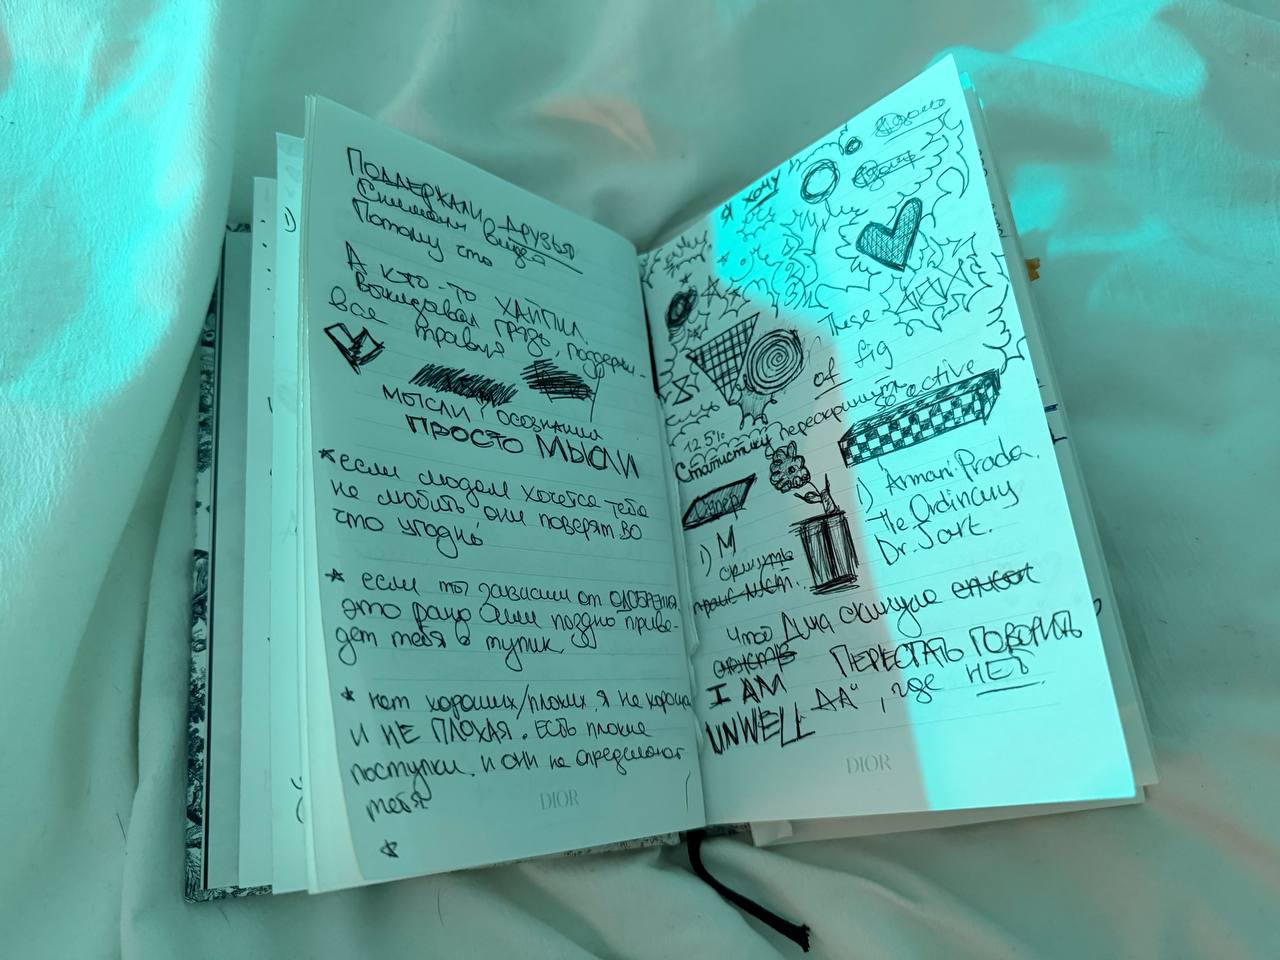 ПОДДЕРЖАЛИ ДРУЗЬЯ
Снимали видея
Потому что
А кто-то ХАЙПИЛ
Выливал ГРЯЗЬ, поддерж-
вал травлю
МЫСЛИ, ОСОЗНАНИЯ
ПРОСТО МЫСЛИ
если людям хочется тебя
не любить они поверят во
что угодно
если ты зависим от ОДОБРЕНИЯ,
это рано или поздно приве-
дет тебя в тупик
нет хороших/плохих. Я не хороша
И НЕ ПЛОХАЯ. ЕСТЬ плохие
поступки, и они не определяют
тебя
DIOR
Я ХОЧУ
These
of fig
12.51.
so active
Статистику перескринить
1) М
скинуть
1) Armani. Prada.
The Ordinary
Dr. Jart.
что Дина скинула список
I AM
UNWELL
ПЕРЕСТАТЬ ГОВОРИТЬ
„ДА“, где НЕТ
DIOR